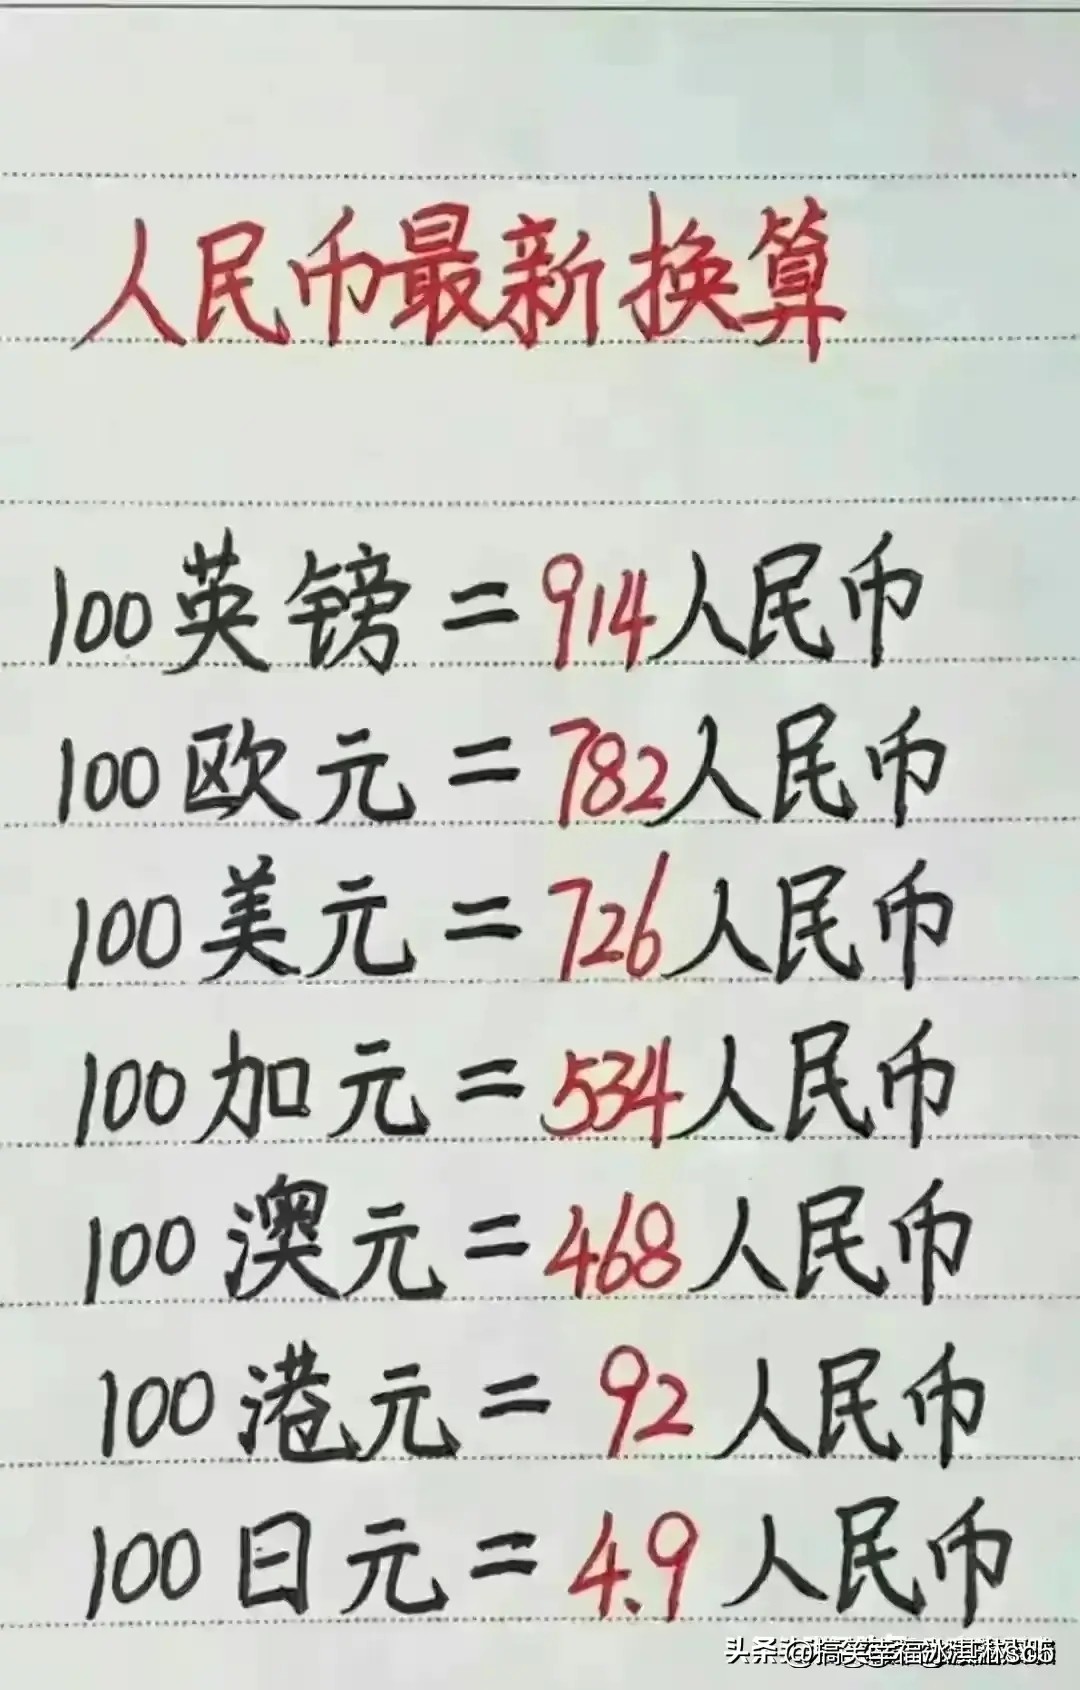 人民币最新换算
100英镑=914人民币
100欧元=782人民币
100美元=726人民币
100加元=534人民币
100澳元=468人民币
100港元=92人民币
100日元=4.9人民币
头条@搞笑幸福冰淇淋